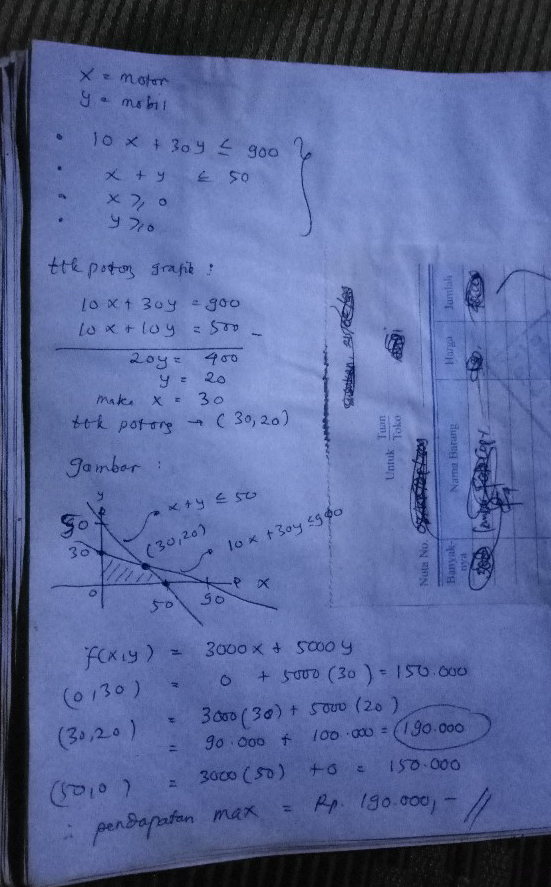 x = motor
y = mobil
• 10x + 30y ≤ 900
• x + y ≤ 50
• x ≥ 0
• y ≥ 0
ttk potog grafik :
10x + 30y = 900
10x + 10y = 500 -
20y = 400
y = 20
maka x = 30
ttk potong → (30,20)
gambar :
y
50
x + y ≤ 50
30
(30,20)
10x + 30y ≤ 900
0
50
90
x
f(x,y) = 3000x + 5000y
(0,30) = 0 + 5000(30) = 150.000
(30,20) = 3000(30) + 5000(20)
= 90.000 + 100.000 = 190.000
(50,0) = 3000(50) + 0 = 150.000
∴ pendapatan max = Rp. 190.000,- //
Untuk
Tuan
Toko
Nota No
Banyak-
nya
Nama Barang
Harga
Jumlah